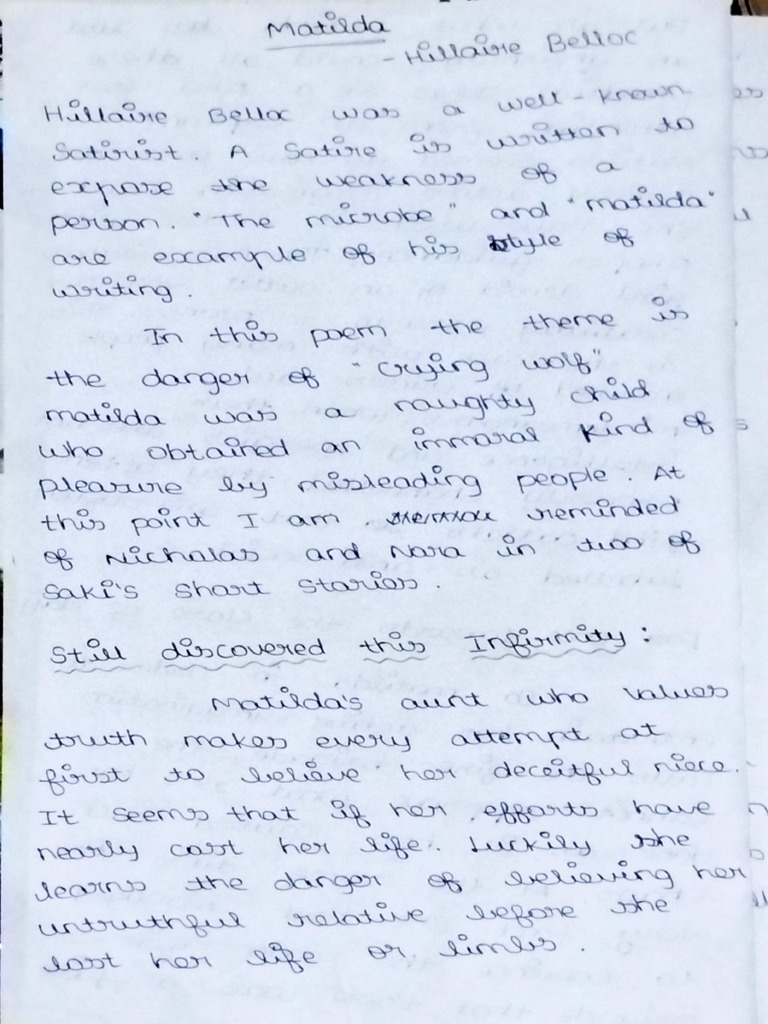 Matilda
- Hillaire Belloc
Hillaire Belloc was a well-known
Satirist. A Satire is written to
expose the weakness of a
person. "The microbe" and "matilda"
are example of his style of
writing.
In this poem the theme is
the danger of "crying wolf"
matilda was a naughty child
who obtained an immoral kind of
pleasure by misleading people. At
this point I am reminded
of Nicholas and Nora in two of
Saki's short stories.
Still discovered this Infirmity:
Matilda's aunt who values
truth makes every attempt at
first to believe her deceitful niece.
It seems that if her efforts have
nearly cost her life. Luckily she
learns the danger of believing her
untruthful relative before she
lost her life or limbs.